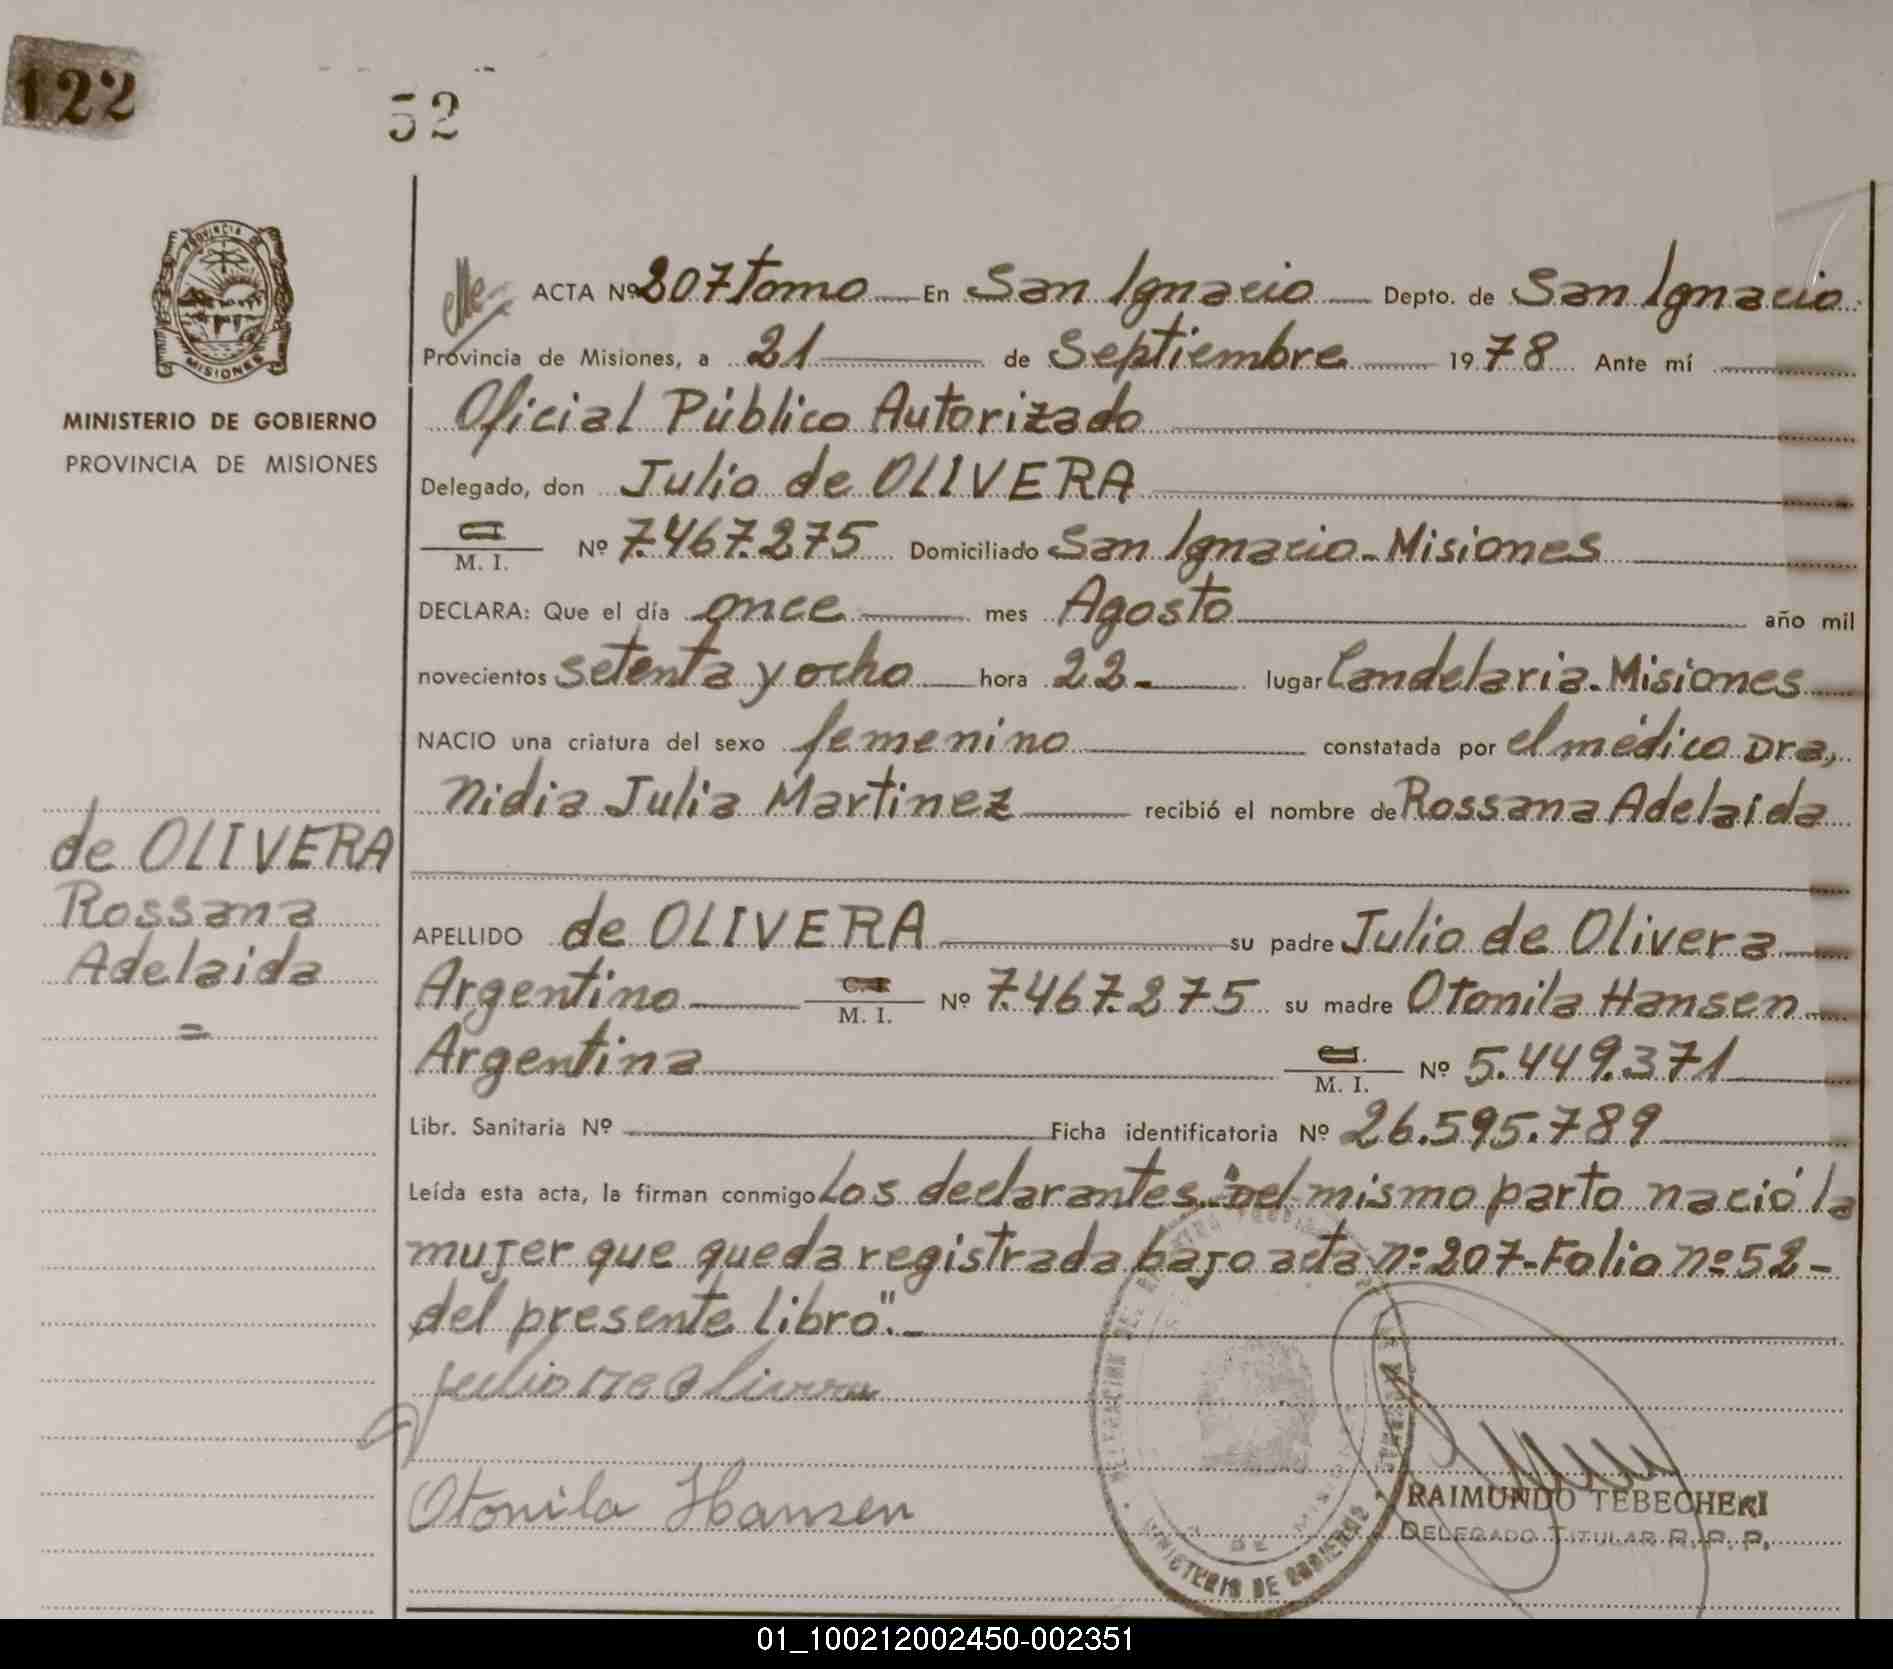 122
52
PROVINCIA DE
MISIONES
MINISTERIO DE GOBIERNO
PROVINCIA DE MISIONES
ACTA Nº 207 tomo En San Ignacio Depto. de San Ignacio
Provincia de Misiones, a 21 de Septiembre 1978 Ante mí
Oficial Público Autorizado
Delegado, don Julio de OLIVERA
M. I. Nº 7.467.275 Domiciliado San Ignacio-Misiones
DECLARA: Que el día once mes Agosto año mil
novecientos setenta y ocho hora 22- lugar Candelaria-Misiones
NACIO una criatura del sexo femenino constatada por el médico Dra,
Nidia Julia Martinez recibió el nombre de Rossana Adelaida
de OLIVERA
Rossana
Adelaida
=
APELLIDO de OLIVERA su padre Julio de Olivera
Argentino C. I. M. I. Nº 7.467.275 su madre Otonila Hansen
Argentina M. I. Nº 5.449.371
Libr. Sanitaria Nº Ficha identificatoria Nº 26.595.789
Leída esta acta, la firman conmigo Los declarantes.- "Del mismo parto nació la
mujer que queda registrada bajo acta nº 207-Folio nº 52-
del presente libro".-
Julio de Olivera
Otonila Hansen
MINISTERIO DE GOBIERNO
DE MISIONES
RAIMUNDO TEBECHERI
DELEGADO TITULAR R. P. P.
01_100212002450-002351